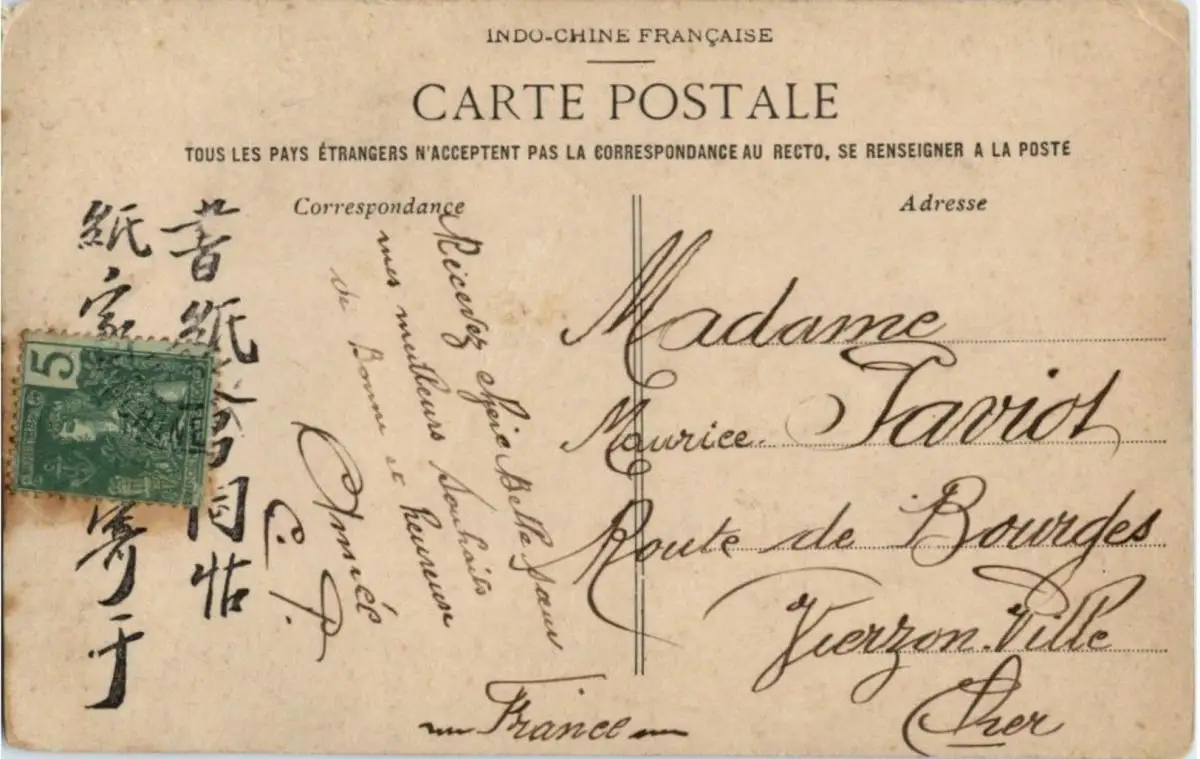 INDO-CHINE FRANÇAISE
CARTE POSTALE
TOUS LES PAYS ÉTRANGERS N'ACCEPTENT PAS LA CORRESPONDANCE AU RECTO, SE RENSEIGNER A LA POSTE
Correspondance
Adresse
書紙 同怙
紙家 寄于
5
Recevez chère Belle Soeur
mes meilleurs souhaits
de Bonne et heureuse
Année
C. P.
Madame
Maurice Taviot
Route de Bourges
Vierzon-Ville
Cher
France